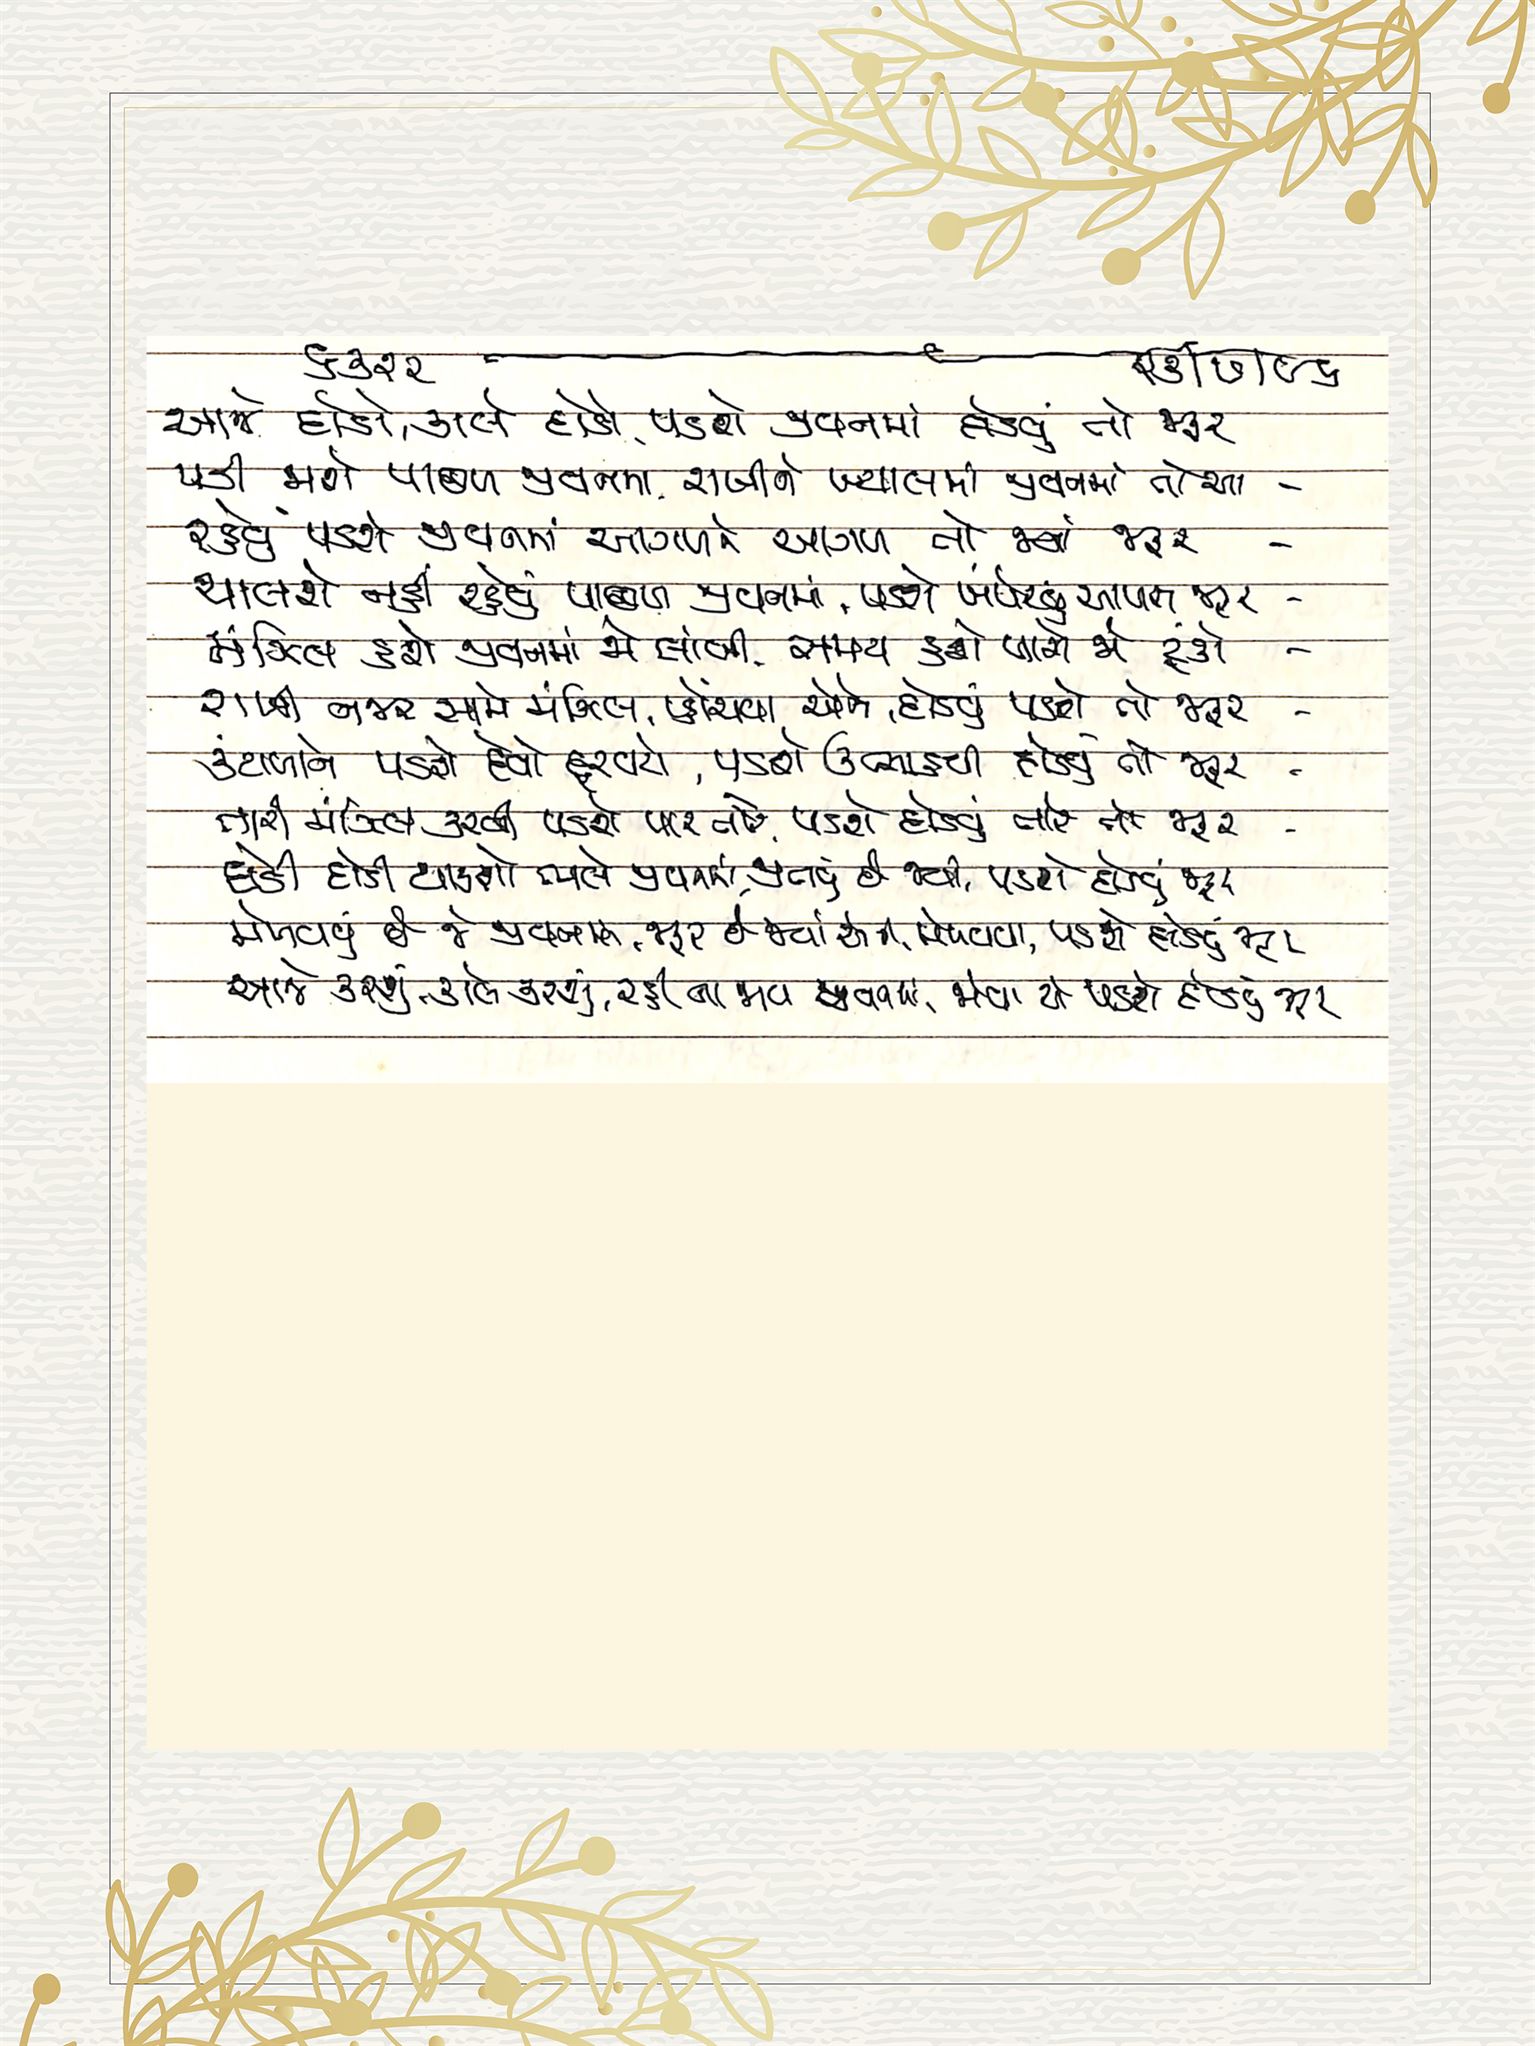 આજે દોડો, કાલે દોડો, પડશે જીવનમાં દોડવું તો જરૂર
પડી જાશે પાછળ જીવનમાં, રાખીને ખ્યાલમાં જીવનમાં તો આ -
રહેવું પડશે જીવનમાં આગળને આગળ તો જ્યાં જરૂર -
ચાલશે નહીં રહેવું પાછળ જીવનમાં, પડશે ખંખેરવું આળસ જરૂર -
મંઝિલ હશે જીવનમાં જે લાંબી, સમય હશે પાસે જે ટૂંકો -
રાખી નજર સામે મંઝિલ, પહોંચવા એને, દોડવું પડશે તો જરૂર -
કંટાળાને પડશે દેવો દેશવટો, પડશે ઉત્સાહથી દોડવું તો જરૂર -
તારી મંઝિલ કરવી પડશે પાર તારે, પડશે દોડવું તારે તો જરૂર -
દોડી દોડી થાકશો ભલે જીવનમાં, જીતવું છે જ્યાં, પડશે દોડવું જરૂર
મેળવવું છે જે જીવનમાં, જરૂર છે જ્યાં એની, મેળવવા, પડશે દોડવું જરૂર
આજે કરશું, કાલે કરશું, રહી ના જાય જીવનમાં, જોવા એ પડશે દોડવું જરૂર